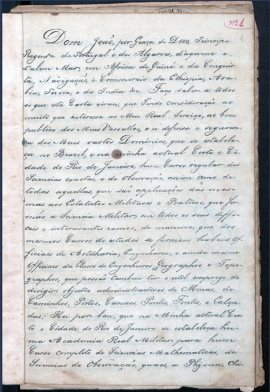 Nº 1
Dom João, por Graça de Deos, Principe
Regente de Portugal e dos Algarves, d'aquem e
d'alem Mar, em Africa de Guiné e da Conquis-
ta, Navegação, e Commercio da Ethiopia, Ara-
bia, Persia, e da India &a. Faço saber a todos
os que esta Carta virem, que tendo consideração ao
muito que interessa ao Meu Real Serviço, ao bem
publico dos Meus Vassallos, e a defesa e seguran-
ça dos Meus vastos Dominios, que se estabele-
ça no Brazil, e na minha actual Corte e Ci-
dade do Rio de Janeiro, hum Curso regular das
Sciencias exactas, e de Observação, assim como de
todas aquellas, que são applicações das mes-
mas aos Estudos Militares e Praticos, que for-
mão a Sciencia Militar em todos os seus diffi-
ceis e interessantes ramos, de maneira, que dos
mesmos Cursos de estudos se formem habeis Of-
ficiaes de Artilharia, Engenharia, e ainda mesmo
Officiaes da Classe de Engenheiros Geographos e Topo-
graphos, que possão tambem ter o util emprego de
dirigir objectos administrativos de Minas, de
Caminhos, Portos, Canaes, Pontes, Fontes, e Calça-
das: Hei por bem, que na Minha actual Corte
e Cidade do Rio de Janeiro se estabeleça hu-
ma Academia Real Militar para hum
Curso completo de Sciencias Mathematicas, de
Sciencias de Observação, quaes a Physica, Chi-